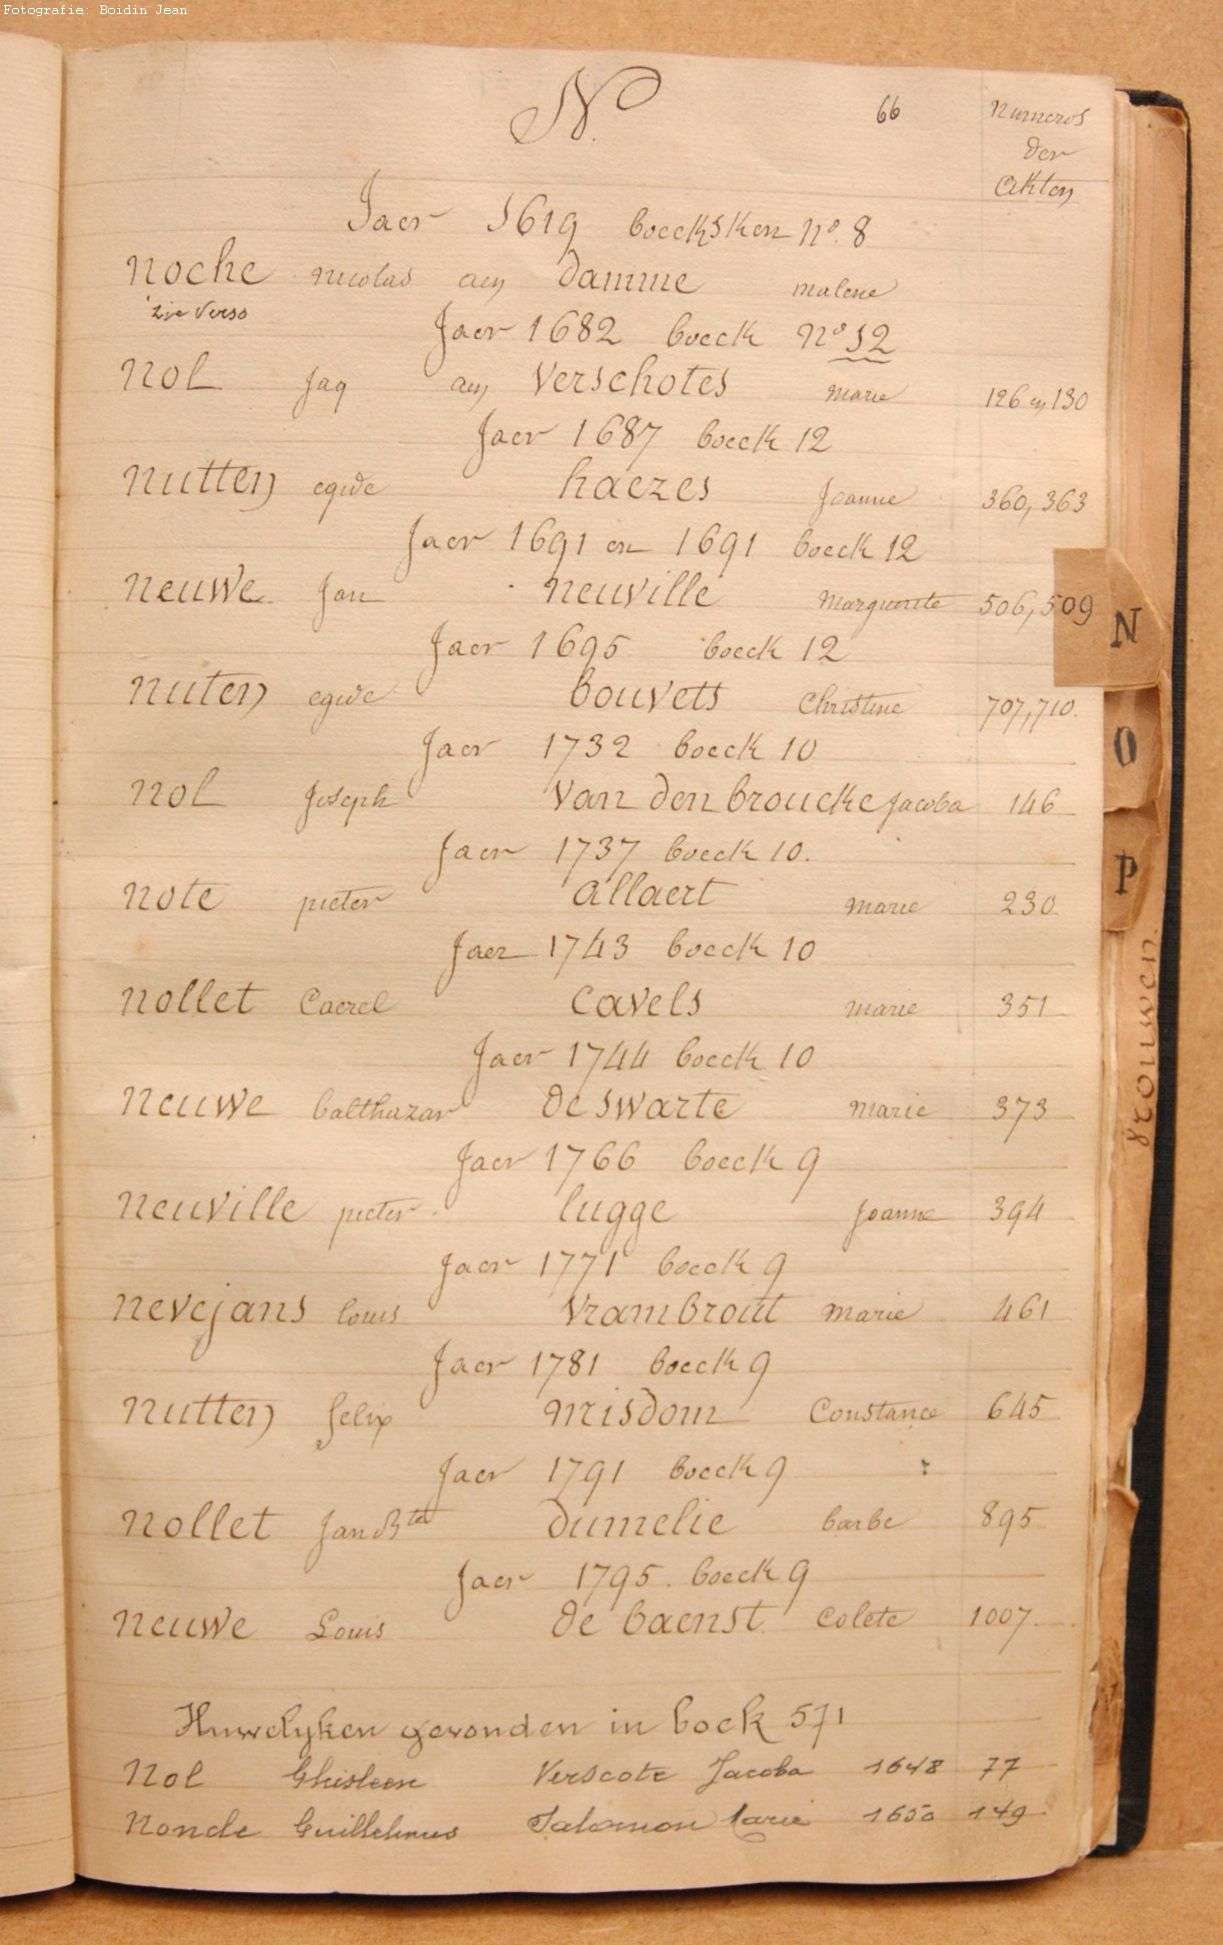 Fotografie: Boidin Jean
N.
66
Numeros
der
Akten
Jaer 1619 boecksken No. 8
Noche Nicolas aen Damme malene
Zie Verso
Jaer 1682 boeck No 12
Nol Jaq aen Verschotes Marie 126 en 130
Jaer 1687 boeck 12
Nutten egide haezes Joanne 360, 363
Jaer 1691 en 1691 boeck 12
Neuwe Jan neuville Marguerite 506, 509
Jaer 1695 boeck 12
Nuten egide bouvets Christine 707, 710.
Jaer 1732 boeck 10
Nol Joseph van den broucke Jacoba 146
Jaer 1737 boeck 10.
Note pieter allaert marie 230
Jaer 1743 boeck 10
Nollet Caerel cavels marie 351
Jaer 1744 boeck 10
Neuwe balthazar de swarte marie 373
Jaer 1766 boeck 9
Neuville pieter lugge Joanne 394
Jaer 1771 boeck 9
Nevejans louis vrambrout marie 461
Jaer 1781 boeck 9
Nutten felix misdom Constance 645
Jaer 1791 boeck 9
Nollet Jan Bte dumelie barbe 895
Jaer 1795. boeck 9
Neuwe Louis de baenst Colete 1007.
Huwelyken gevonden in boek 571
Nol Ghisleen Verscote Jacoba 1648 77
Nonde Guillelmus Salomon Marie 1650 149
N
O
P
vrouwen.